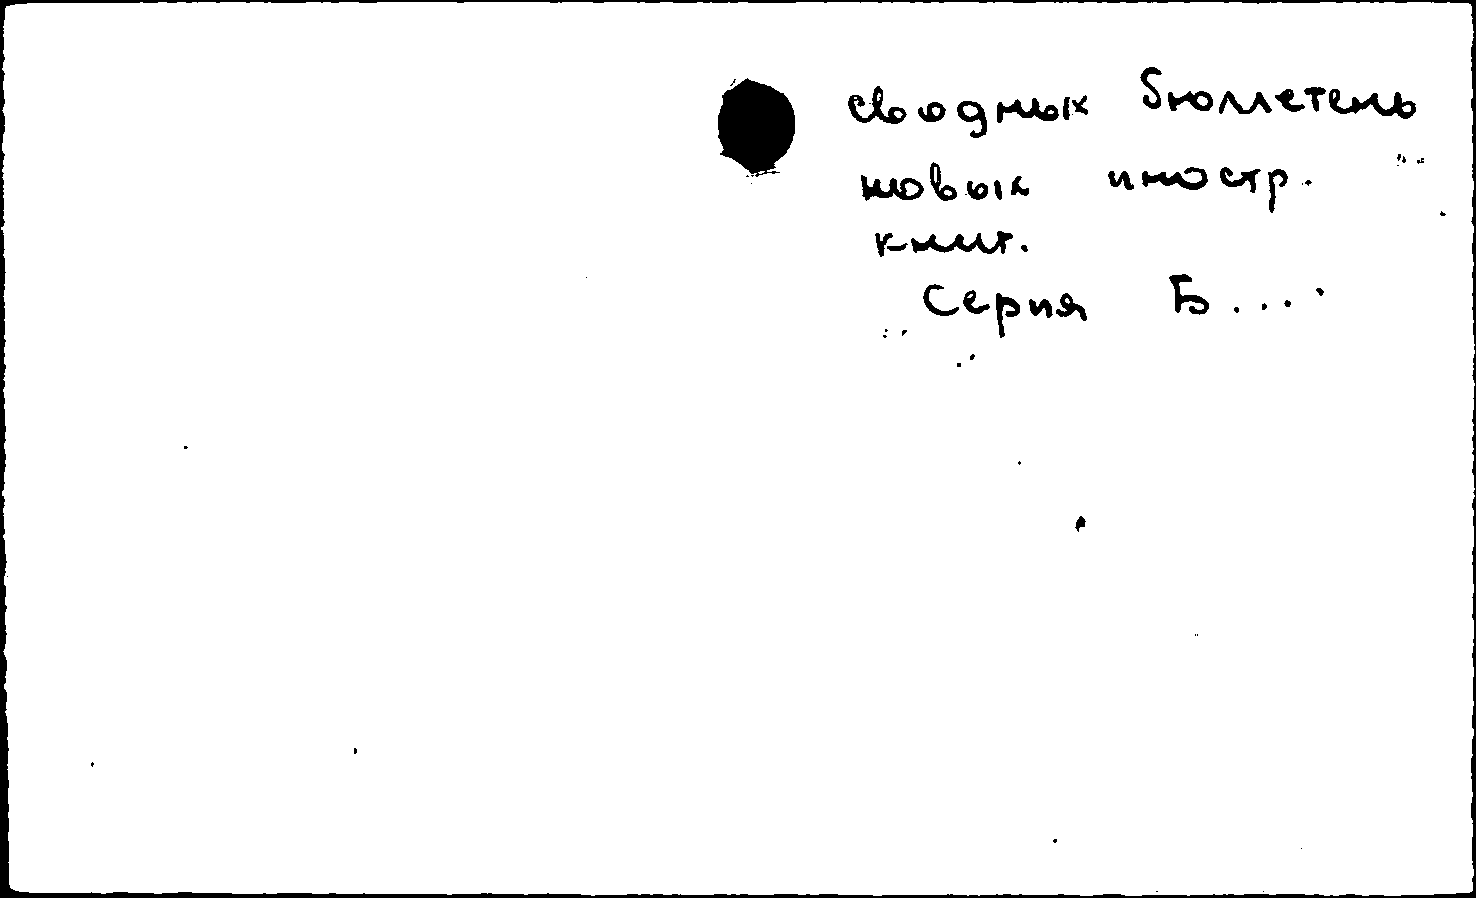 сводных бюллетень
новых иностр.
книг.
Серия Б....